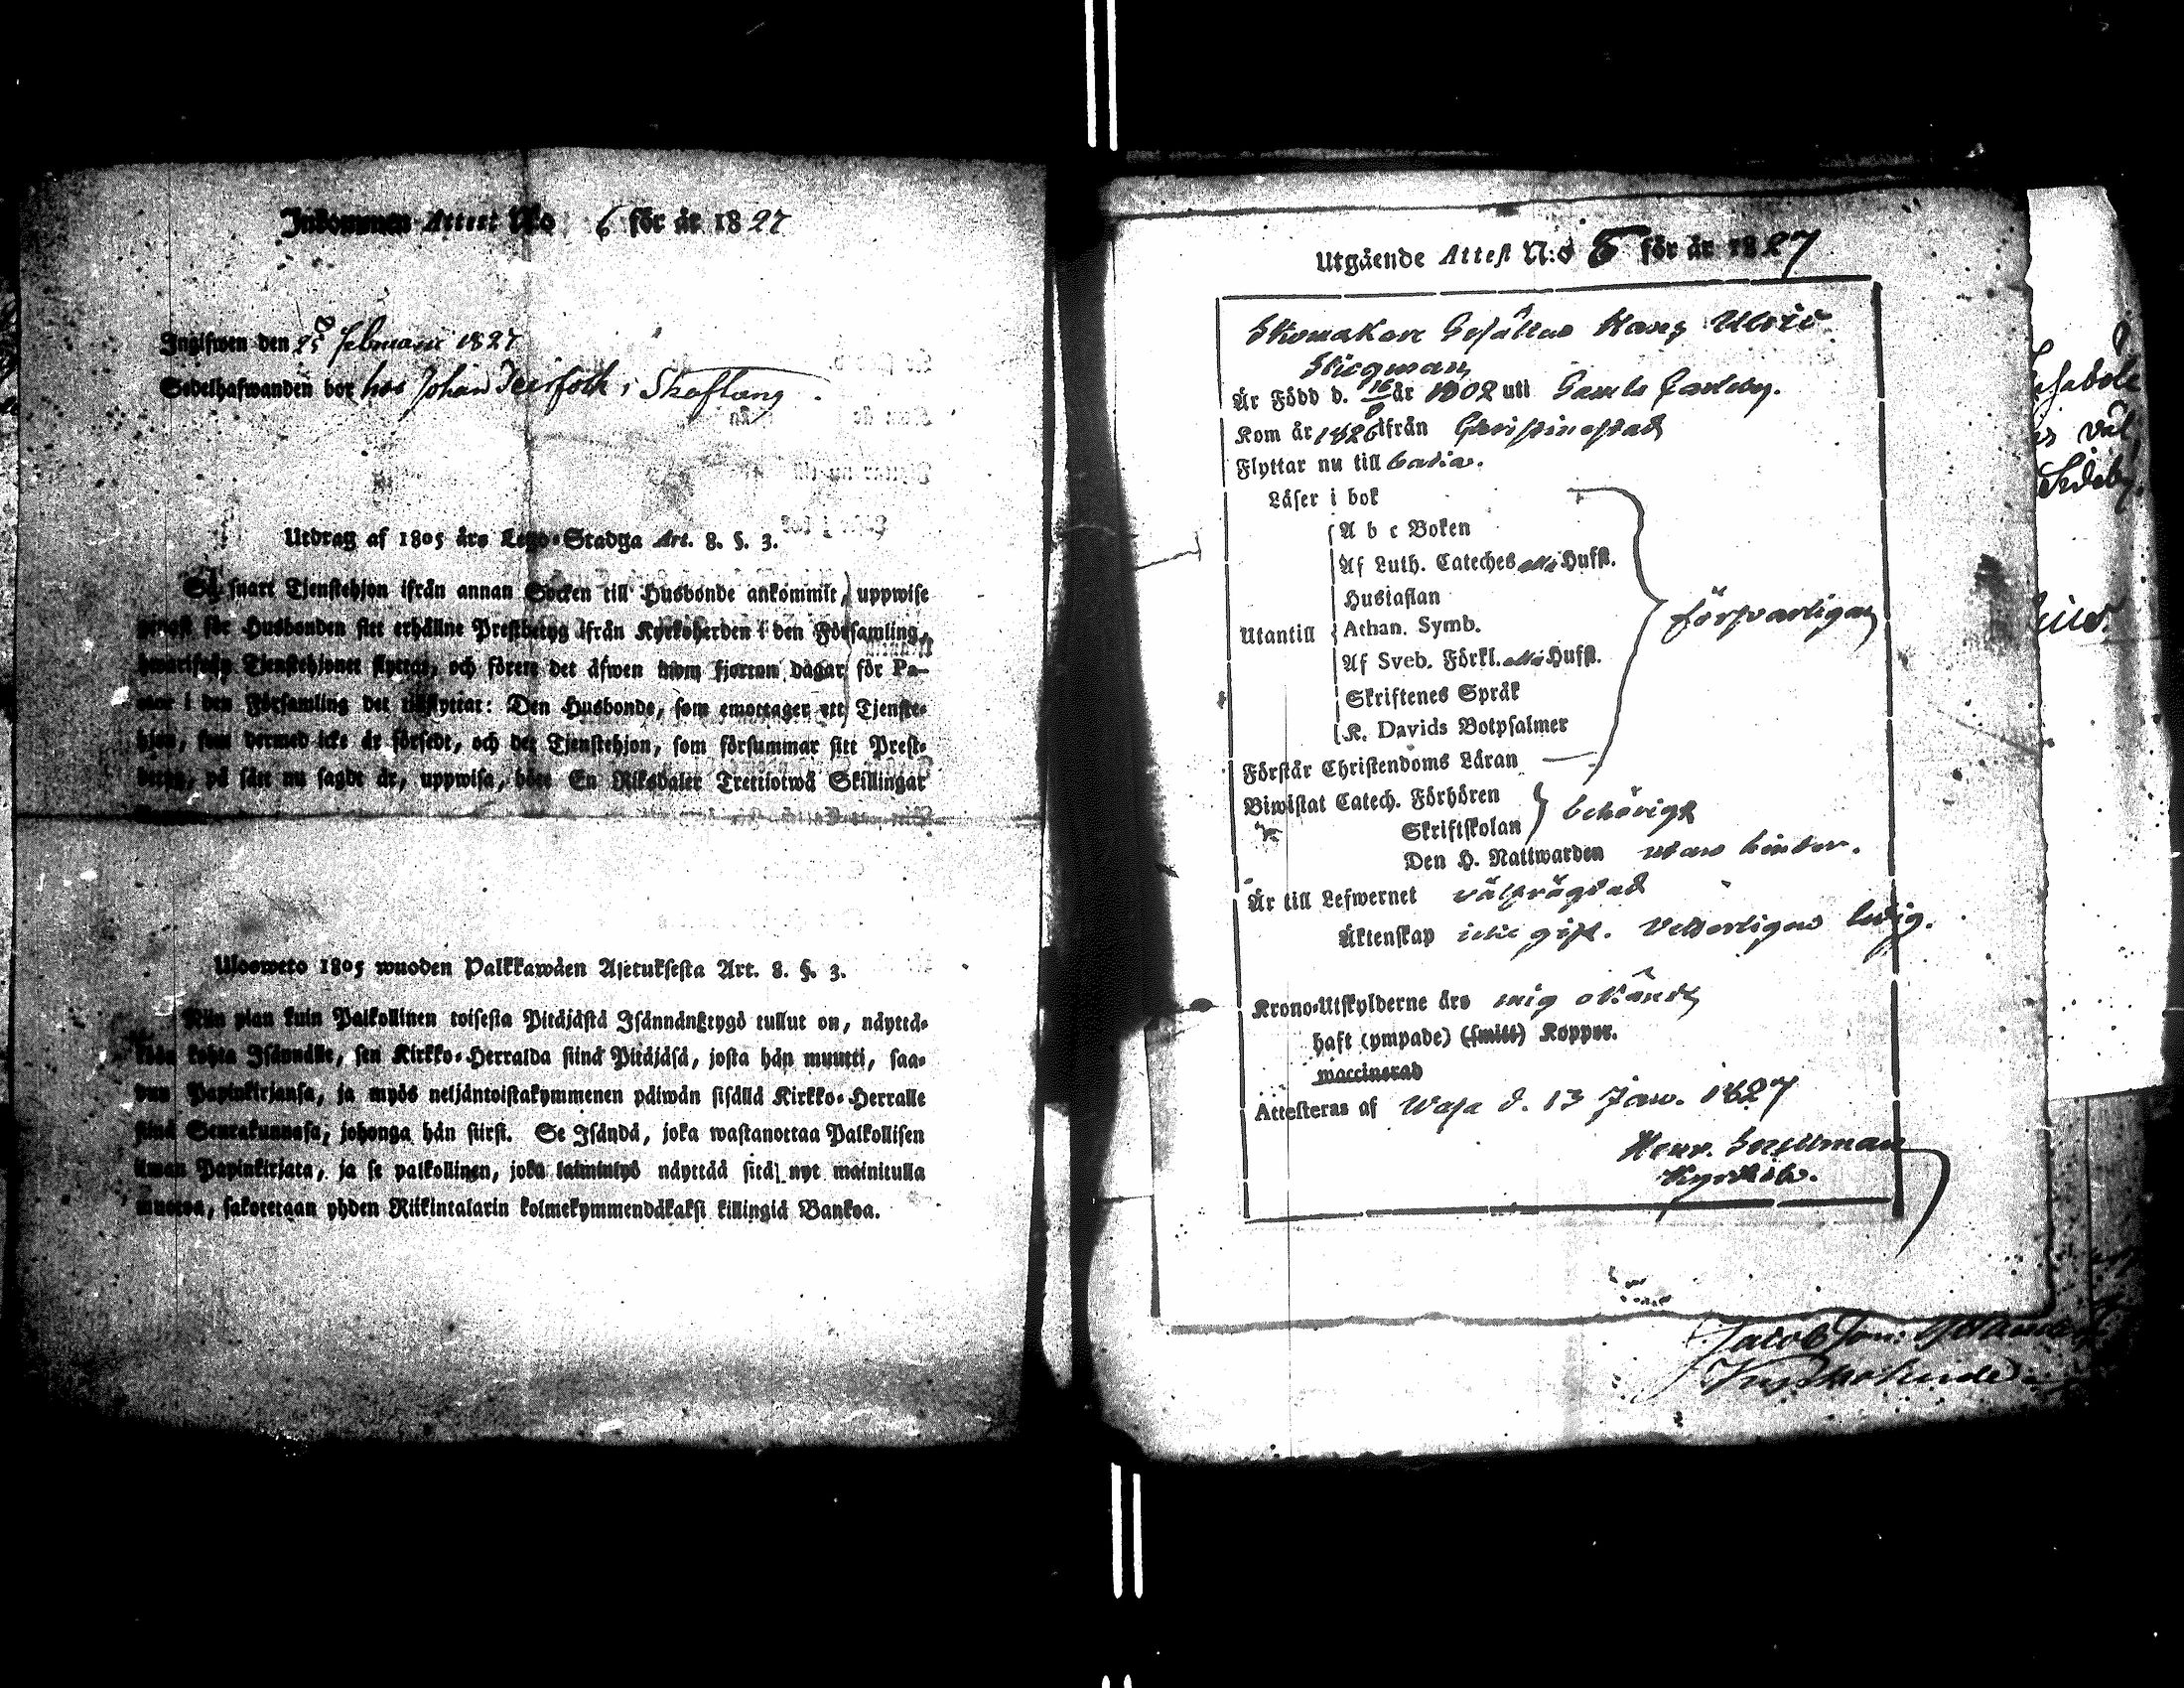 Inkommen Attest No 6 för år 1827
Ingifwen den 25 februarii 1827
Sedelhafwanden bor hos Johan i Skaftung
Utdrag af 1805 års Lego-Stadga Art. 8. §. 3.
Så snart Tjenstehjon ifrån annan Socken till Husbonde ankommit, uppwise
genast för Husbonden sitt erhållne Prestbetyg ifrån Kyrkoherden i den Församling,
hwarifrån Tjenstehjonet flyttat, och förete det äfwen inom fjorton dagar för Pa-
stor i den Församling det tillflyttat: Den Husbonde, som emottager ett Tjenste-
hjon, som dermed icke är försedt, och det Tjenstehjon, som försummar sitt Prest-
betyg, på sätt nu sagdt är, uppwisa, böte En Riksdaler Trettiotwå Skillingar
Ulosweto 1805 wuoden Palkkawäen Asetuksesta Art. 8. §. 3.
Niin pian kuin Palkollinen toisesta Pitäjästä Isännänstygö tullut on, näyttä-
köön kohta Isännälle, sen Kirkko-Herralda siinä Pitäjäsä, josta hän muutti, saa-
dun Papinkirjansa, ja myös neljäntoistakymmenen päiwän sisällä Kirkko-Herralle
siinä Seurakunnasa, johonga hän siirsi. Se Isändä, joka wastanottaa Palkollisen
ilman Papinkirjata, ja se palkollinen, joka laiminlyö näyttää sitä nyt mainitulla
muotoa, sakotetaan yhden Riikintalarin kolmekymmendäkaksi killingiä Bankoa.
Utgående Attest N:o 5 för år 1827
Skomakare Gesällen Hans Ulric
Stiegman
Är Född d. 16/8 år 1802 uti Gamla Carleby.
Kom år 1826 ifrån Christinestad
Flyttar nu till
Läser i bok
A b c Boken
Af Luth. Cateches Husst.
Hustaflan
Utantill Athan. Symb. försvarligen
Af Sveb. Förkl. Husst.
Skriftenes Språk
K. Davids Botpsalmer
Förstår Christendoms Läran
Biwistat Catech. Förhören
Skriftskolan behörigt
Den H. Nattwarden utan hinder.
Är till Lefwernet välfrägdad
Äktenskap icke gift. Vetterligen ledig.
Krono-Utskylderne års mig okändt
haft (ympade) (smitt) Koppor.
waccinerad
Attesteras af Wasa d. 13 Jan. 1827
Henr.
Jacob